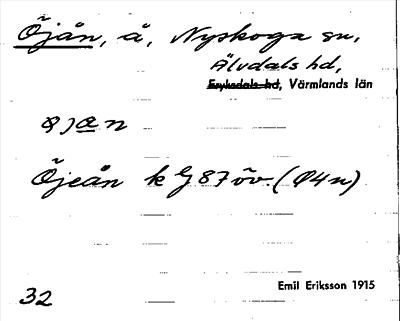 Öjån, å, Nyskoga sn,
Älvdals hd,
Fryksdals hd, Värmlands län
Öjeån k G 87 öv. (Q4n)
Emil Eriksson 1915
32